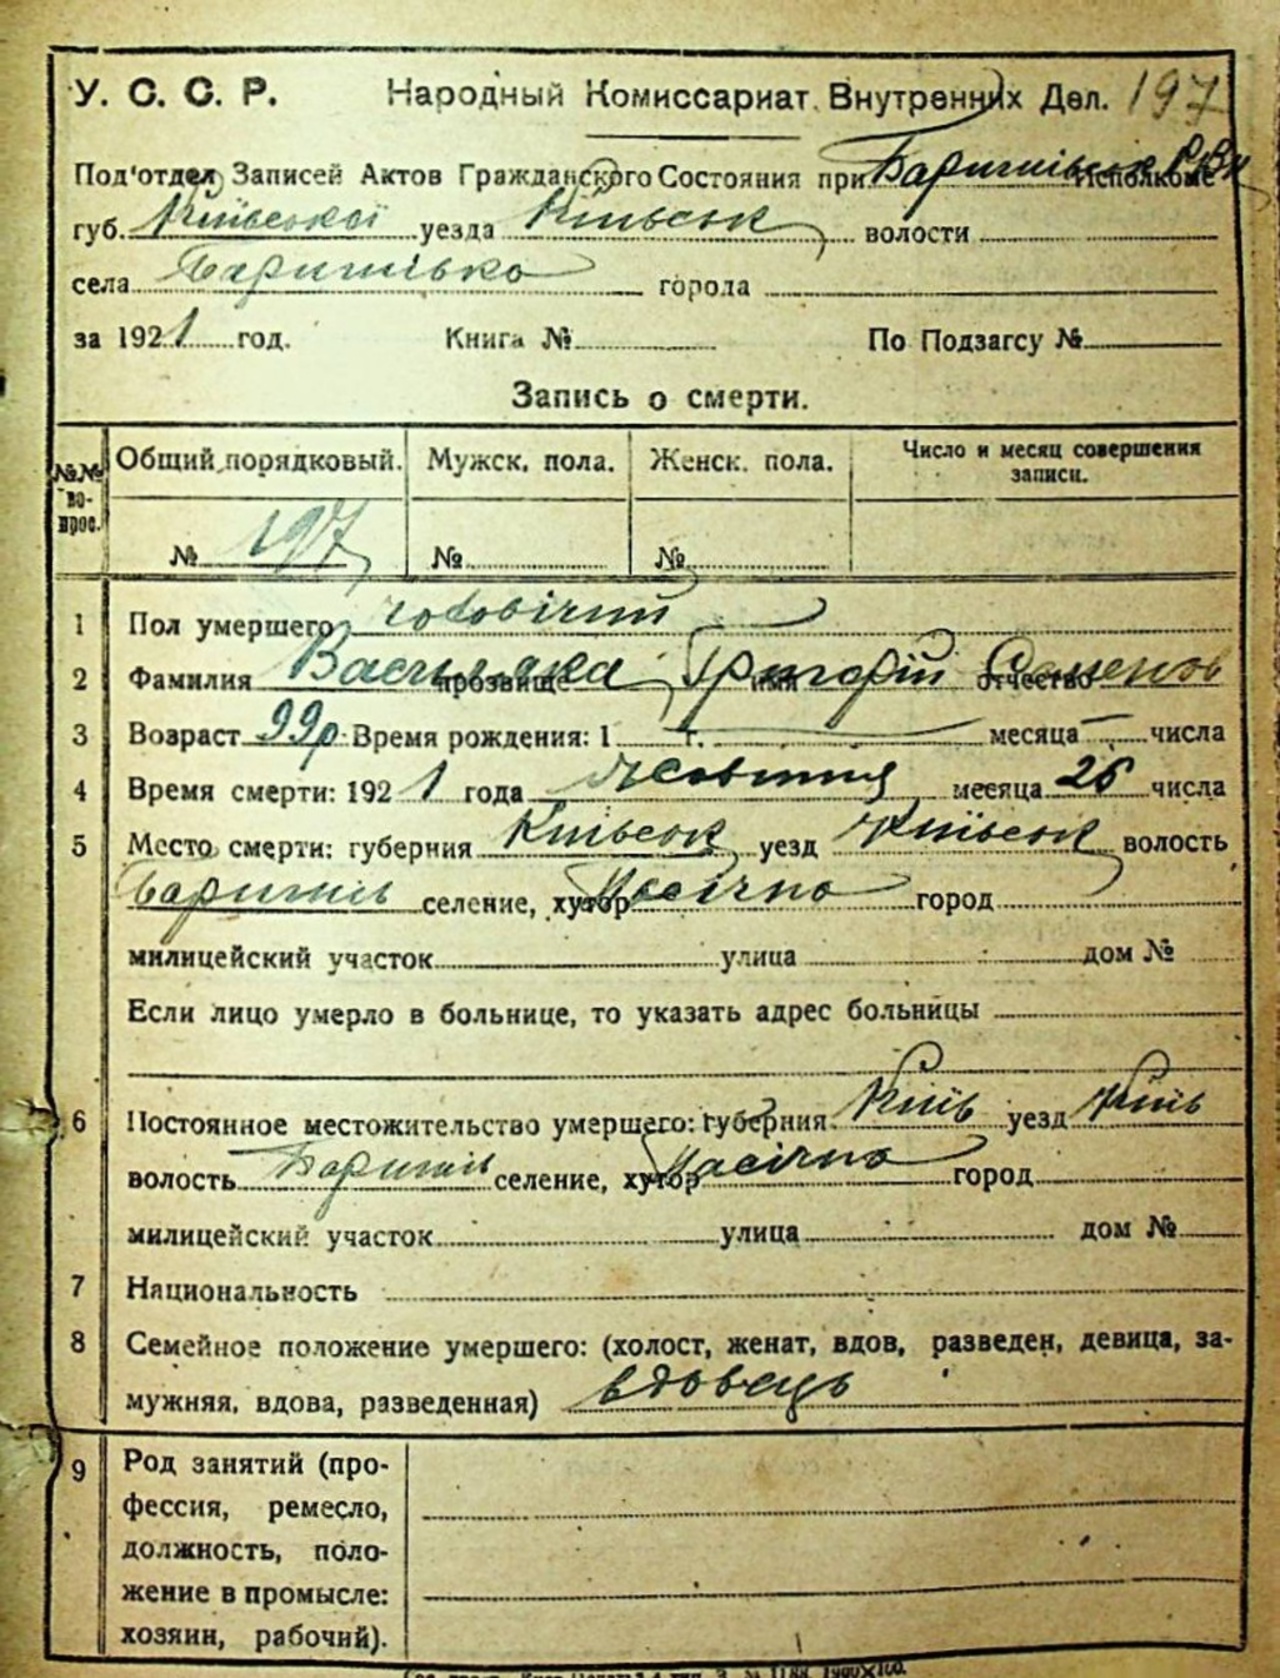 У. С. С. Р. Народный Комиссариат Внутренних Дел. 197
Под'отдел Записей Актов Гражданского Состояния при Баришівськ РВк Исполкоме
губ. Київської уезда Київськ волости
села Баришівка города
за 1921 год. Книга № По Подзагсу №
Запись о смерти.
№№ во-прос. Общий порядковый. Мужск. пола. Женск. пола. Число и месяц совершения записи.
№ 197 № №
1 Пол умершего чоловічий
2 Фамилия прозвище Григорій имя Семенов отчество
3 Возраст 99р. Время рождения: 1 г. месяца числа
4 Время смерти: 1921 года Жовтня месяца 26 числа
5 Место смерти: губерния Київськ уезд Київськ волость
Баришів селение, хутор Пасічна город
милицейский участок улица дом №
Если лицо умерло в больнице, то указать адрес больницы
6 Постоянное местожительство умершего: губерния Київ уезд Київ
волость Баришів селение, хутор Пасічна город
милицейский участок улица дом №
7 Национальность
8 Семейное положение умершего: (холост, женат, вдов, разведен, девица, за-
мужняя, вдова, разведенная) вдовець
9 Род занятий (про-
фессия, ремесло,
должность, поло-
жение в промысле:
хозяин, рабочий).